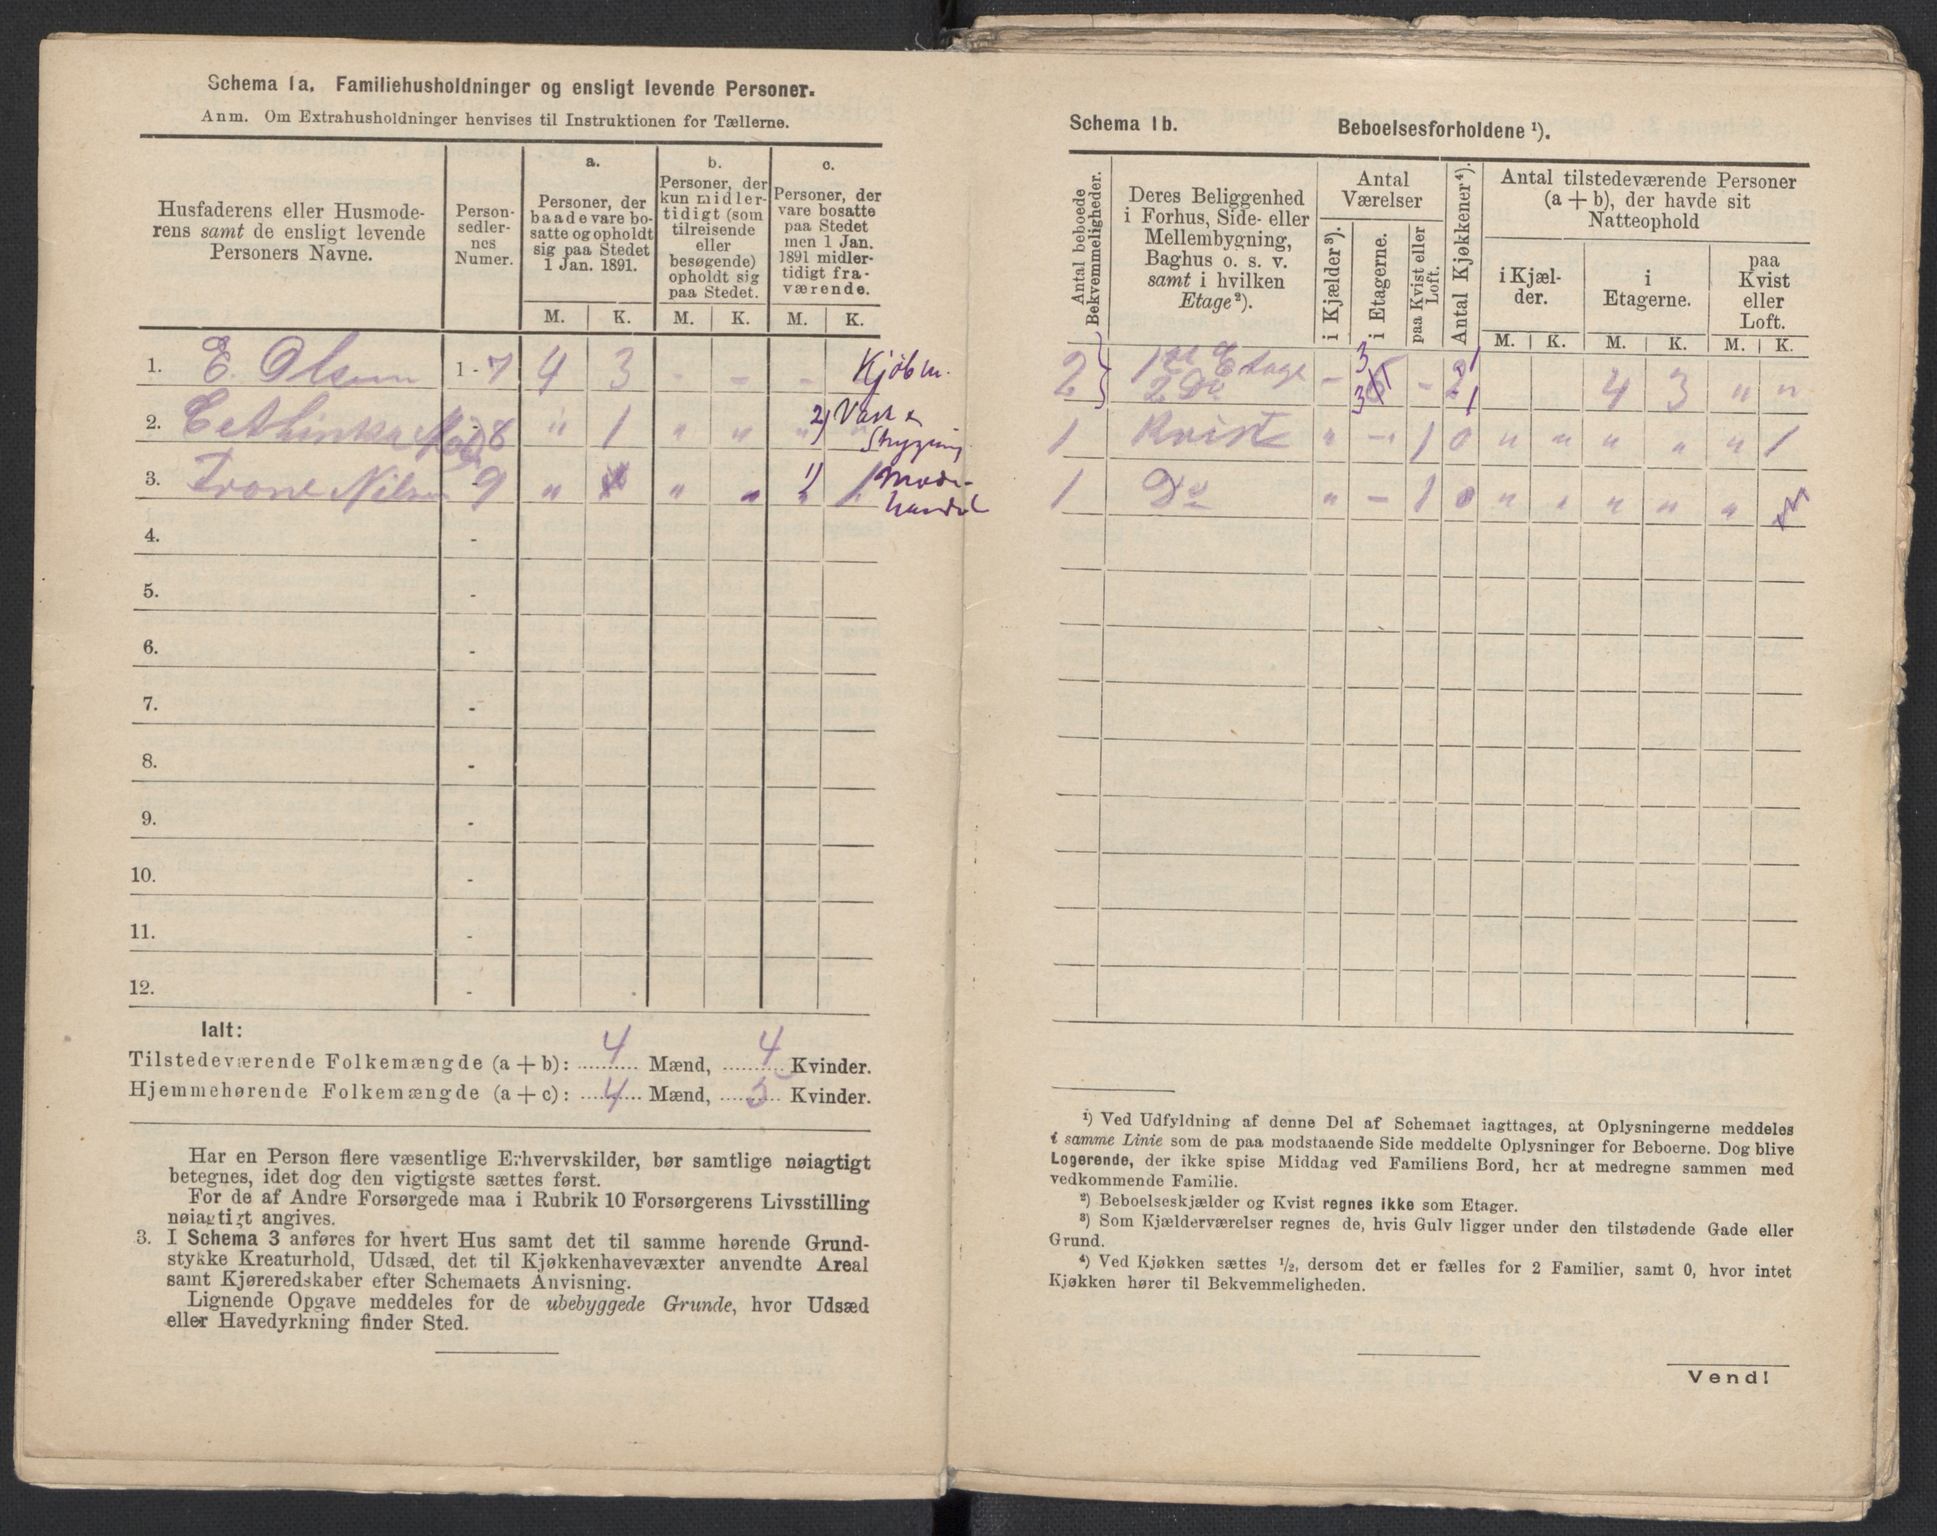 Schema 1a. Familiehusholdninger og ensligt levende Personer.
Anm. Om Extrahusholdninger henvises til Instruktionen for Tællerne.
Husfaderens eller Husmode-
rens samt de ensligt levende
Personers Navne.
Person-
sedler-
nes
Numer.
a.
Personer, der
baade vare bo-
satte og opholdt
sig paa Stedet
1 Jan. 1891.
b.
Personer, der
kun midler-
tidigt (som
tilreisende
eller
besøgende)
opholdt sig
paa Stedet.
c.
Personer, der
vare bosatte
paa Stedet
men 1 Jan.
1891 midler-
tidigt fra-
værende.
M. K. M. K. M. K.
1. E. Olsen 1 - 7 4 3 - - - Kjöbm.
2. - 8 " 1 " " " 2) Vask &
Strygning
3. Nilsen - 9 " " " 1) 1 Mode-
handel
4. -
5. -
6. -
7. -
8. -
9. -
10. -
11. -
12. -
Ialt:
Tilstedeværende Folkemængde (a + b): 4 Mænd, 4 Kvinder.
Hjemmehørende Folkemængde (a + c): 4 Mænd, 5 Kvinder.
Har en Person flere væsentlige Erhvervskilder, bør samtlige nøiagtigt
betegnes, idet dog den vigtigste sættes først.
For de af Andre Forsørgede maa i Rubrik 10 Forsørgerens Livsstilling
nøiagtigt angives.
3. I Schema 3 anføres for hvert Hus samt det til samme hørende Grund-
stykke Kreaturhold, Udsæd, det til Kjøkkenhavevæxter anvendte Areal
samt Kjøreredskaber efter Schemaets Anvisning.
Lignende Opgave meddeles for de ubebyggede Grunde, hvor Udsæd
eller Havedyrkning finder Sted.
Schema 1b. Beboelsesforholdene ¹).
Antal beboede
Bekvemmeligheder.
Deres Beliggenhed
i Forhus, Side- eller
Mellembygning,
Baghus o. s. v.
samt i hvilken
Etage ²).
Antal
Værelser
i Kjælder ³).
i Etagerne.
paa Kvist eller
Loft.
Antal Kjøkkener ⁴).
Antal tilstedeværende Personer
(a + b), der havde sit
Natteophold
i Kjæl-
der.
i
Etagerne.
paa
Kvist
eller
Loft.
M. K. M. K. M. K.
2 } 1ste Etage - 3 - 1 4 3 " "
2 Do 3 1
1 Kvist " - 1 0 " " " " " 1
1 Do " - 1 0 " " " " "
¹) Ved Udfyldning af denne Del af Schemaet iagttages, at Oplysningerne meddeles
i samme Linie som de paa modstaaende Side meddelte Oplysninger for Beboerne. Dog blive
Logerende, der ikke spise Middag ved Familiens Bord, her at medregne sammen med
vedkommende Familie.
²) Beboelseskjælder og Kvist regnes ikke som Etager.
³) Som Kjælderværelser regnes de, hvis Gulv ligger under den tilstødende Gade eller
Grund.
⁴) Ved Kjøkken sættes ½, dersom det er fælles for 2 Familier, samt 0, hvor intet
Kjøkken hører til Bekvemmeligheden.
Vend!